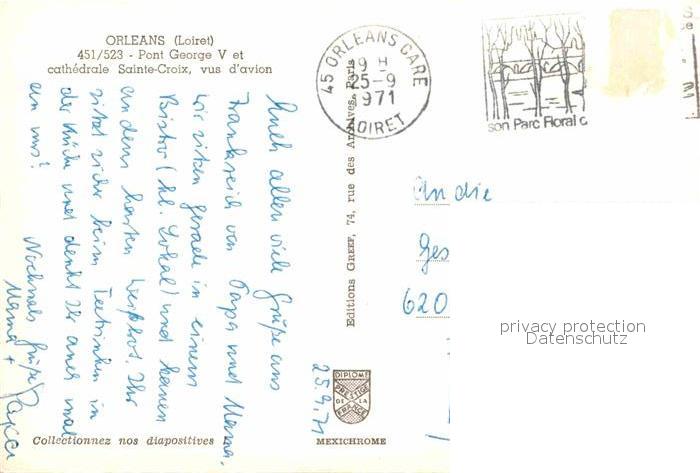 ORLEANS (Loiret)
451/523 - Pont George V et
cathédrale Sainte-Croix, vus d'avion
45 ORLEANS GARE
9 H
25-9
1971
LOIRET
son Parc Floral
Editions GREFF, 74, rue des Archives, Paris
Euch allen viele Grüße aus
Frankreich von Papa und Mama.
Wir sitzen gerade in einem
Bistro (kl. Lokal) und
an dem
sitzt sicher beim Teetrinken in
der Küche und denkt Ihr auch mal
an uns?
Nochmals Grüße
Mama +
Papa
25.9.71
An die
Ges
620
privacy protection
Datenschutz
DIPLOME
PRESTIGE
DE LA
FRANCE
Collectionnez nos diapositives
MEXICHROME